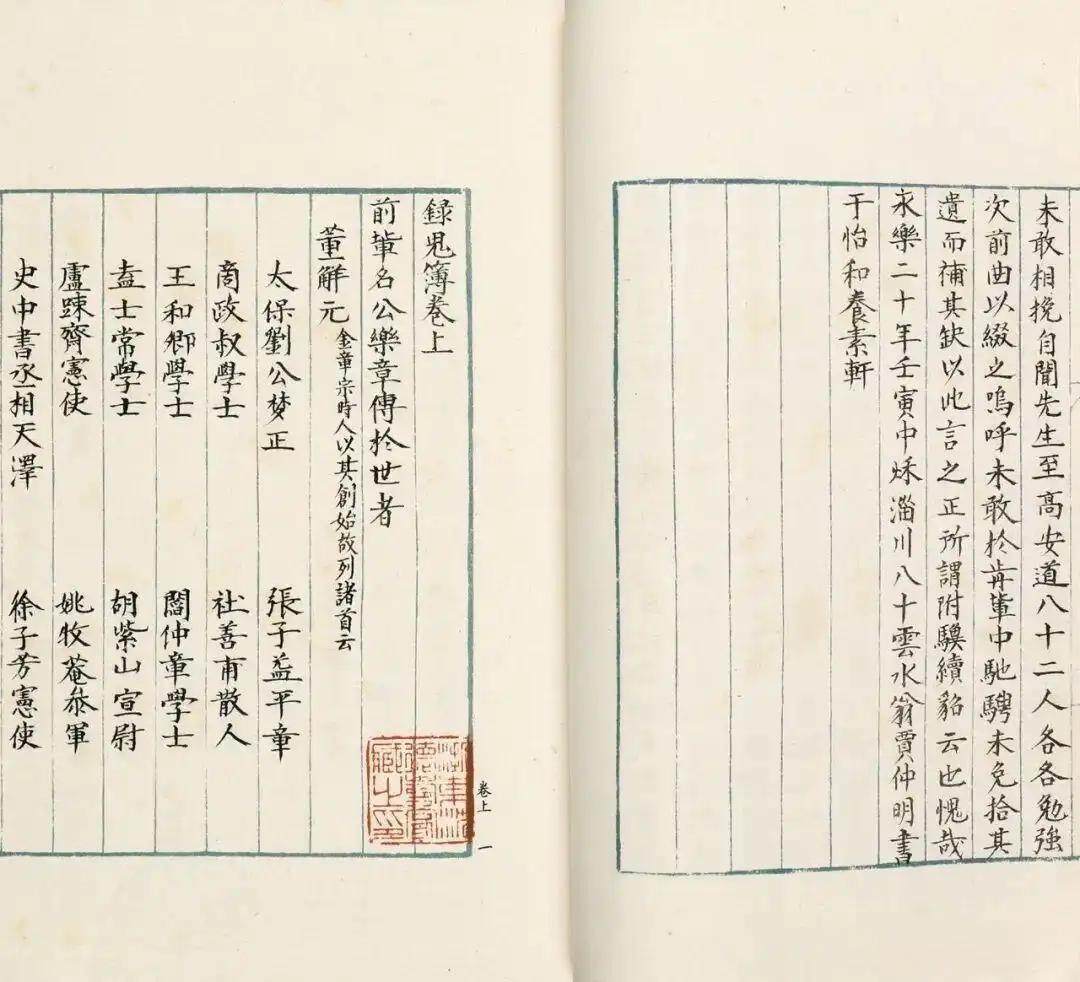 未敢相挽自關先生至高安道八十二人各各勉強
次前曲以綴之嗚呼未敢於前輩中馳騁未免拾其
遺而補其缺以此言之正所謂附驥續貂云也愧哉
永樂二十年壬寅中秌淄川八十雲水翁賈仲明書
于怡和養素軒
録鬼簿卷上
前輩名公樂章傳於世者
董解元 金章宗時人以其創始故列諸首云
太保劉公梦正 張子益平章
商政叔學士 社善甫散人
王和卿學士 閻仲章學士
盍士常學士 胡紫山宣尉
盧踈齋憲使 姚牧菴叅軍
史中書丞相天澤 徐子芳憲使
卷上 一